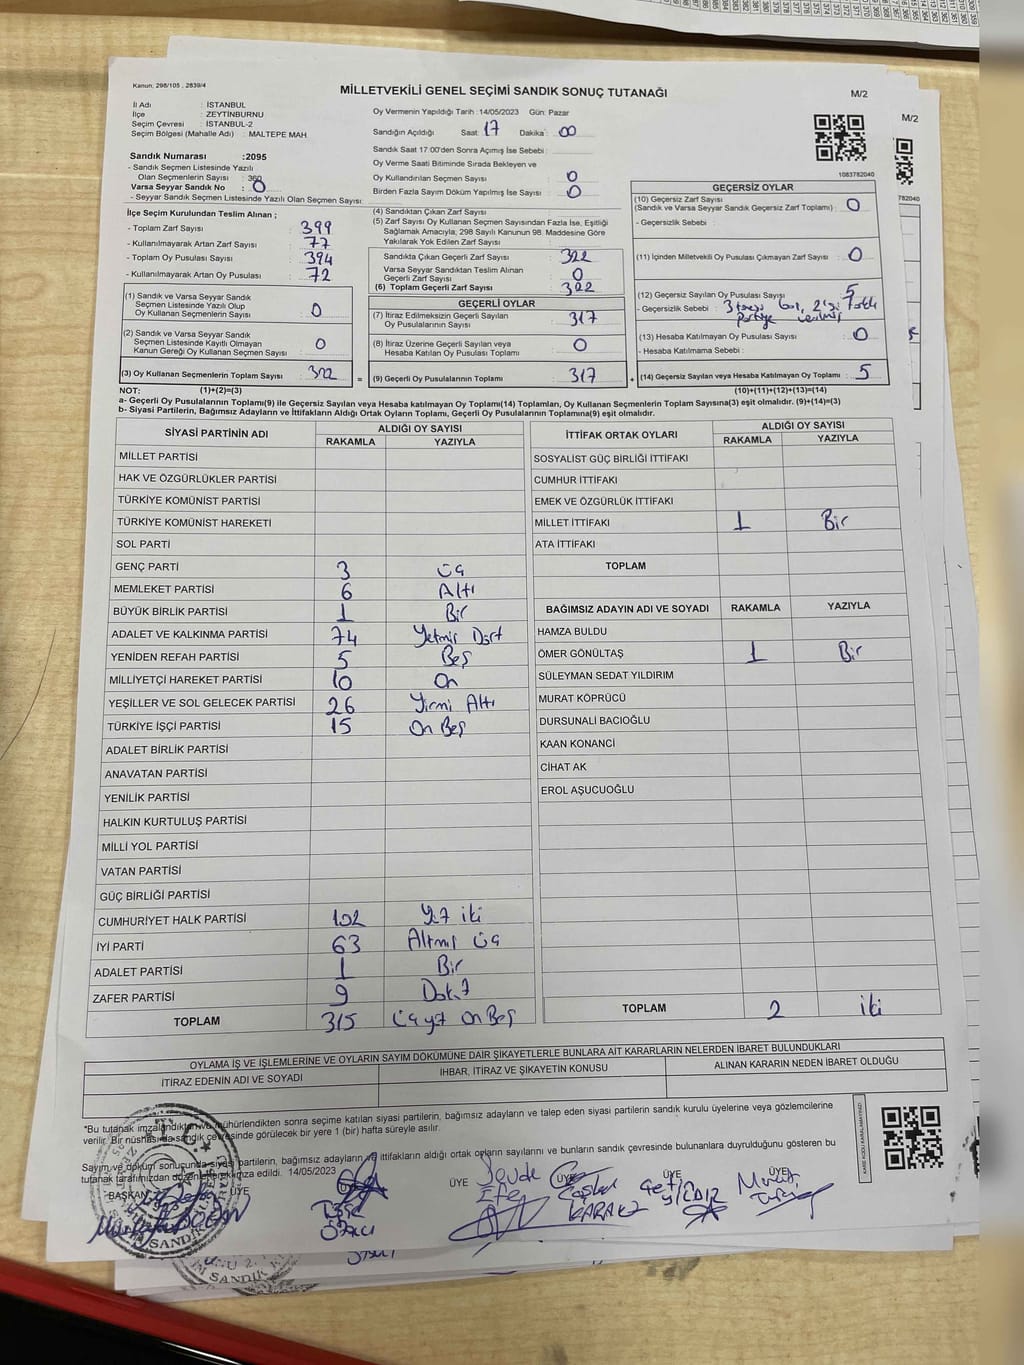 Kanun: 298/105 , 2839/4
MİLLETVEKİLİ GENEL SEÇİMİ SANDIK SONUÇ TUTANAĞI
M/2
İl Adı : İSTANBUL
İlçe : ZEYTİNBURNU
Seçim Çevresi : İSTANBUL-2
Seçim Bölgesi (Mahalle Adı) : MALTEPE MAH.
Oy Vermenin Yapıldığı Tarih : 14/05/2023 Gün: Pazar
Sandığın Açıldığı Saat 17 Dakika : 00
Sandık Saat 17:00'den Sonra Açılmış İse Sebebi :
Oy Verme Saati Bitiminde Sırada Bekleyen ve
Oy Kullandırılan Seçmen Sayısı : 0
Birden Fazla Sayım Döküm Yapılmış İse Sayısı : 0
M/2
1083782040
782040
Sandık Numarası :2095
- Sandık Seçmen Listesinde Yazılı
Olan Seçmenlerin Sayısı : 360
Varsa Seyyar Sandık No : 0
- Seyyar Sandık Seçmen Listesinde Yazılı Olan Seçmen Sayısı:
İlçe Seçim Kurulundan Teslim Alınan ;
- Toplam Zarf Sayısı : 399
- Kullanılmayarak Artan Zarf Sayısı : 77
- Toplam Oy Pusulası Sayısı : 394
- Kullanılmayarak Artan Oy Pusulası : 72
(1) Sandık ve Varsa Seyyar Sandık
Seçmen Listesinde Yazılı Olup
Oy Kullanan Seçmenlerin Sayısı : 0
(2) Sandık ve Varsa Seyyar Sandık
Seçmen Listesinde Kayıtlı Olmayan
Kanun Gereği Oy Kullanan Seçmen Sayısı : 0
(3) Oy Kullanan Seçmenlerin Toplam Sayısı : 322
(4) Sandıktan Çıkan Zarf Sayısı :
(5) Zarf Sayısı Oy Kullanan Seçmen Sayısından Fazla İse, Eşitliği
Sağlamak Amacıyla; 298 Sayılı Kanunun 98. Maddesine Göre
Yakılarak Yok Edilen Zarf Sayısı :
Sandıkta Çıkan Geçerli Zarf Sayısı : 322
Varsa Seyyar Sandıktan Teslim Alınan
Geçerli Zarf Sayısı : 0
(6) Toplam Geçerli Zarf Sayısı : 322
GEÇERLİ OYLAR
(7) İtiraz Edilmeksizin Geçerli Sayılan
Oy Pusulalarının Sayısı : 317
(8) İtiraz Üzerine Geçerli Sayılan veya
Hesaba Katılan Oy Pusulası Toplamı : 0
= (9) Geçerli Oy Pusulalarının Toplamı : 317
GEÇERSİZ OYLAR
(10) Geçersiz Zarf Sayısı
(Sandık ve Varsa Seyyar Sandık Geçersiz Zarf Toplamı) : 0
- Geçersizlik Sebebi :
(11) İçinden Milletvekili Oy Pusulası Çıkmayan Zarf Sayısı : 0
(12) Geçersiz Sayılan Oy Pusulası Sayısı : 5
- Geçersizlik Sebebi : 3 tanesi boş, 2'si farklı
partiye verilmiş
(13) Hesaba Katılmayan Oy Pusulası Sayısı : 0
- Hesaba Katılmama Sebebi :
+ (14) Geçersiz Sayılan veya Hesaba Katılmayan Oy Toplamı : 5
NOT: (1)+(2)=(3) (10)+(11)+(12)+(13)=(14)
a- Geçerli Oy Pusulalarının Toplamı(9) ile Geçersiz Sayılan veya Hesaba Katılmayan Oy Toplamı(14) Toplamları, Oy Kullanan Seçmenlerin Toplam Sayısına(3) eşit olmalıdır. (9)+(14)=(3)
b- Siyasi Partilerin, Bağımsız Adayların ve İttifakların Aldığı Ortak Oyların Toplamı, Geçerli Oy Pusulalarının Toplamına(9) eşit olmalıdır.
SİYASİ PARTİNİN ADI ALDIĞI OY SAYISI
RAKAMLA YAZIYLA
MİLLET PARTİSİ
HAK VE ÖZGÜRLÜKLER PARTİSİ
TÜRKİYE KOMÜNİST PARTİSİ
TÜRKİYE KOMÜNİST HAREKETİ
SOL PARTİ
GENÇ PARTİ 3 üç
MEMLEKET PARTİSİ 6 Altı
BÜYÜK BİRLİK PARTİSİ 1 Bir
ADALET VE KALKINMA PARTİSİ 74 Yetmiş Dört
YENİDEN REFAH PARTİSİ 5 Beş
MİLLİYETÇİ HAREKET PARTİSİ 10 On
YEŞİLLER VE SOL GELECEK PARTİSİ 26 Yirmi Altı
TÜRKİYE İŞÇİ PARTİSİ 15 On Beş
ADALET BİRLİK PARTİSİ
ANAVATAN PARTİSİ
YENİLİK PARTİSİ
HALKIN KURTULUŞ PARTİSİ
MİLLİ YOL PARTİSİ
VATAN PARTİSİ
GÜÇ BİRLİĞİ PARTİSİ
CUMHURİYET HALK PARTİSİ 102 Yüz iki
İYİ PARTİ 63 Altmış üç
ADALET PARTİSİ 1 Bir
ZAFER PARTİSİ 9 Dokuz
TOPLAM 315 üçyüz On Beş
İTTİFAK ORTAK OYLARI ALDIĞI OY SAYISI
RAKAMLA YAZIYLA
SOSYALİST GÜÇ BİRLİĞİ İTTİFAKI
CUMHUR İTTİFAKI
EMEK VE ÖZGÜRLÜK İTTİFAKI
MİLLET İTTİFAKI 1 Bir
ATA İTTİFAKI
TOPLAM
BAĞIMSIZ ADAYIN ADI VE SOYADI RAKAMLA YAZIYLA
HAMZA BULDU
ÖMER GÖNÜLTAŞ 1 Bir
SÜLEYMAN SEDAT YILDIRIM
MURAT KÖPRÜCÜ
DURSUNALİ BACIOĞLU
KAAN KONANCİ
CİHAT AK
EROL AŞUCUOĞLU
TOPLAM 2 iki
OYLAMA İŞ VE İŞLEMLERİNE VE OYLARIN SAYIM DÖKÜMÜNE DAİR ŞİKAYETLERLE BUNLARA AİT KARARLARIN NELERDEN İBARET BULUNDUKLARI
İTİRAZ EDENİN ADI VE SOYADI İHBAR, İTİRAZ VE ŞİKAYETİN KONUSU ALINAN KARARIN NEDEN İBARET OLDUĞU
*Bu tutanak imzalandıktan ve mühürlendikten sonra seçime katılan siyasi partilerin, bağımsız adayların ve talep eden siyasi partilerin sandık kurulu üyelerine veya gözlemcilerine
verilir. Bir nüshası da sandık çevresinde görülecek bir yere 1 (bir) hafta süreyle asılır.
Sayım ve döküm sonucunda siyasi partilerin, bağımsız adayların ve ittifakların aldığı ortak oyların sayılarını ve bunların sandık çevresinde bulunanlara duyrulduğunu gösteren bu
tutanak tarafımızdan düzenlenerek imza edildi. 14/05/2023
BAŞKAN ÜYE ÜYE ÜYE ÜYE ÜYE
Sevde
Efe
Coşkun
KARAKZ
Çetin
YILDIZ
KARE KODU KARALAMAYINIZ!